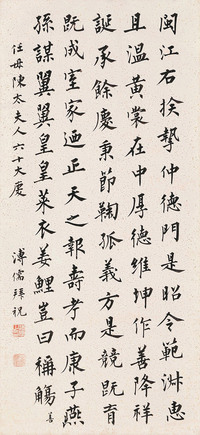 閩江右族摯仲德門是昭令範淑惠
且溫黃裳在中厚德維坤作善降祥
誕承餘慶秉節鞠孤義方是競既育
既成室家迺正天之報壽孝而康子燕
孫謀翼翼皇皇萊衣姜鯉豈曰稱觴 善
任母陳太夫人六十大慶
溥儒拜祝